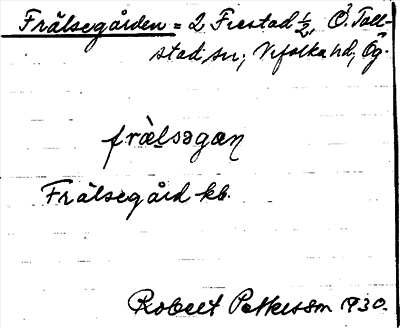 Frälsegården = 2 Frestad ½, Ö. Toll-
stad sn, Vifolka hd, Ög.
fràlsəgan
Frälsegård kb.
Robert Pettersson 1930.